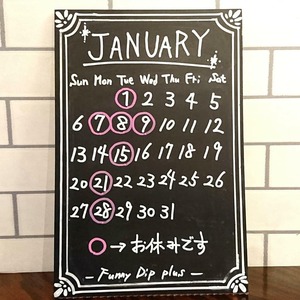 JANUARY
Sun Mon Tue Wed Thu Fri Sat
1 2 3 4 5
6 7 8 9 10 11 12
13 14 15 16 17 18 19
20 21 22 23 24 25 26
27 28 29 30 31
○→お休みです
- Funny Dip plus -